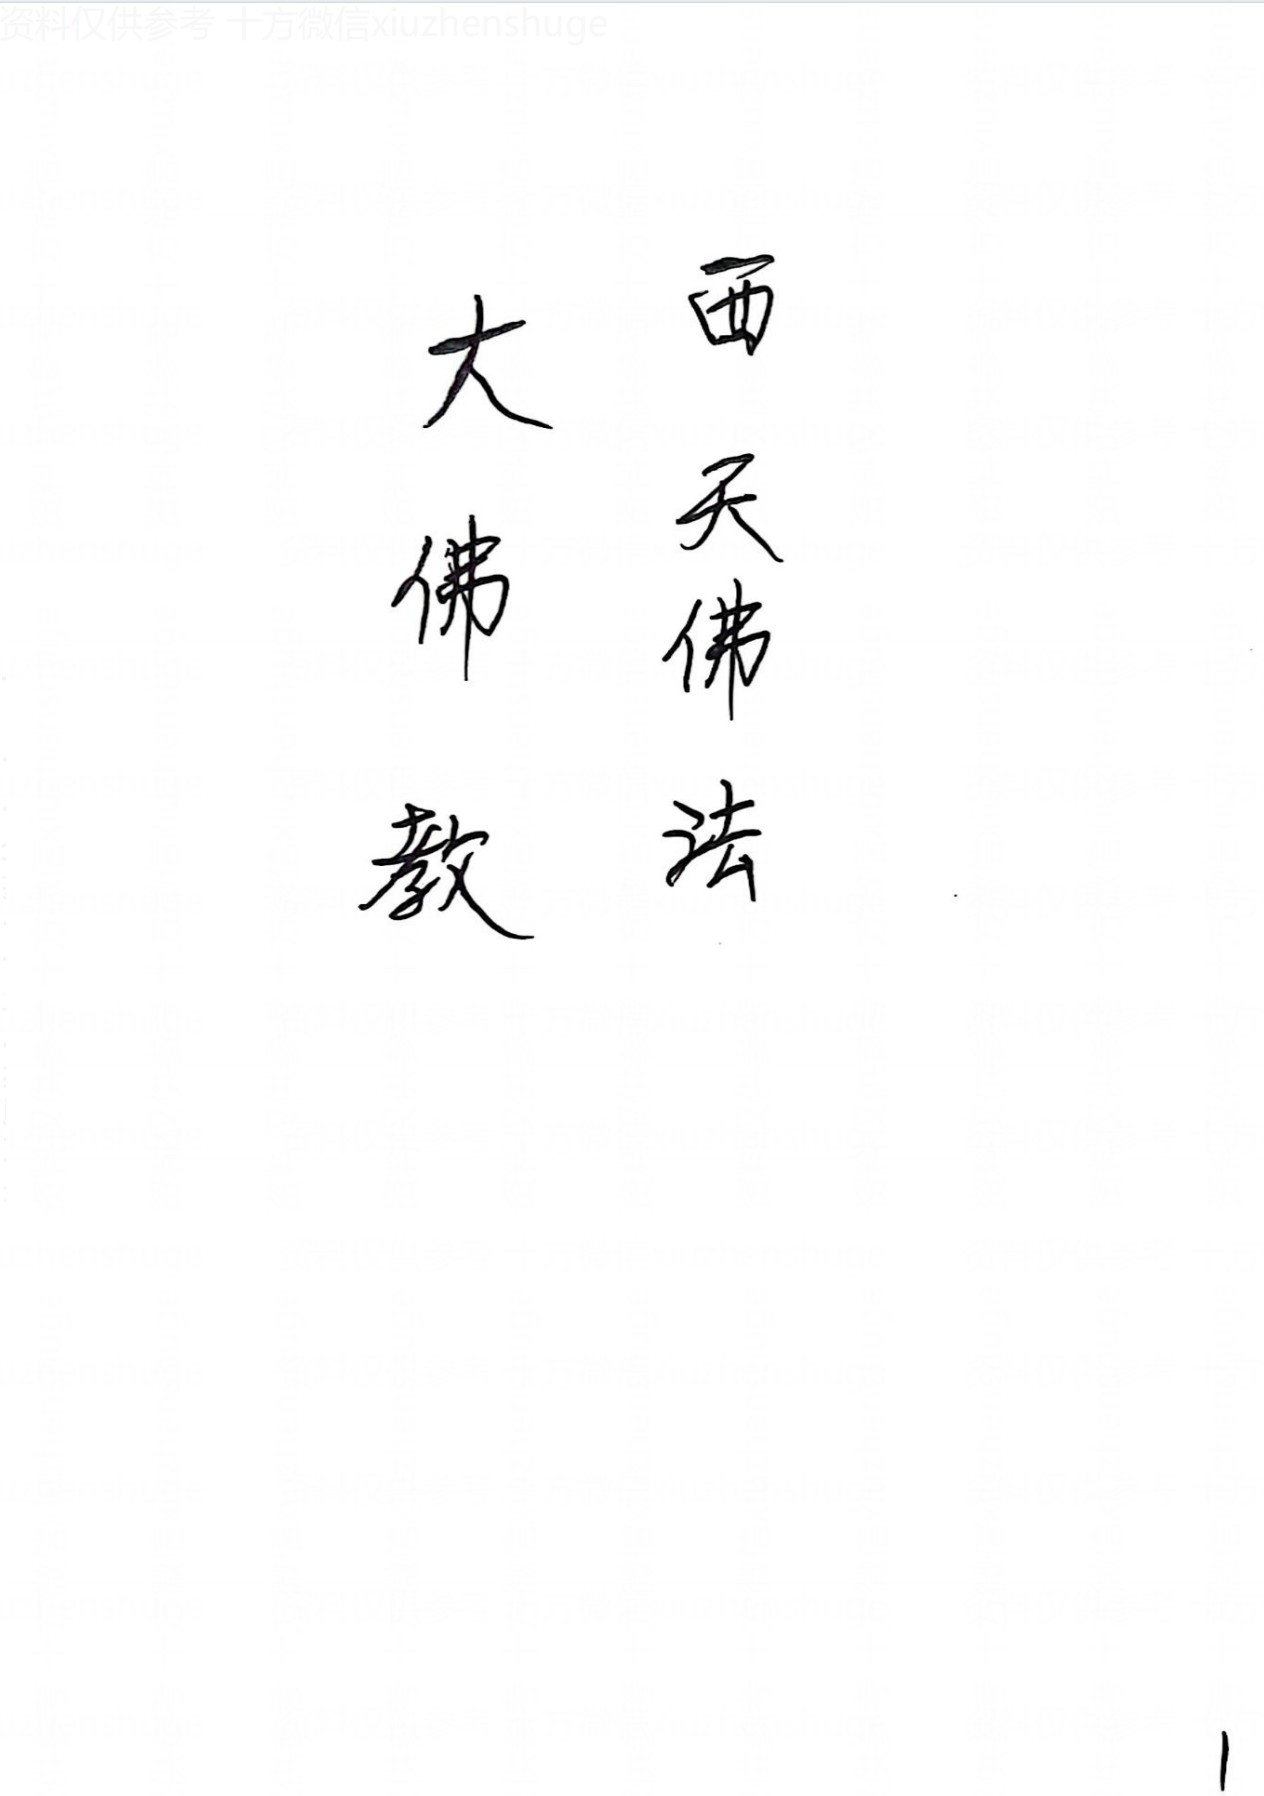 资料仅供参考 十方微信xiuzhenshuge
西天佛法
大佛教
1